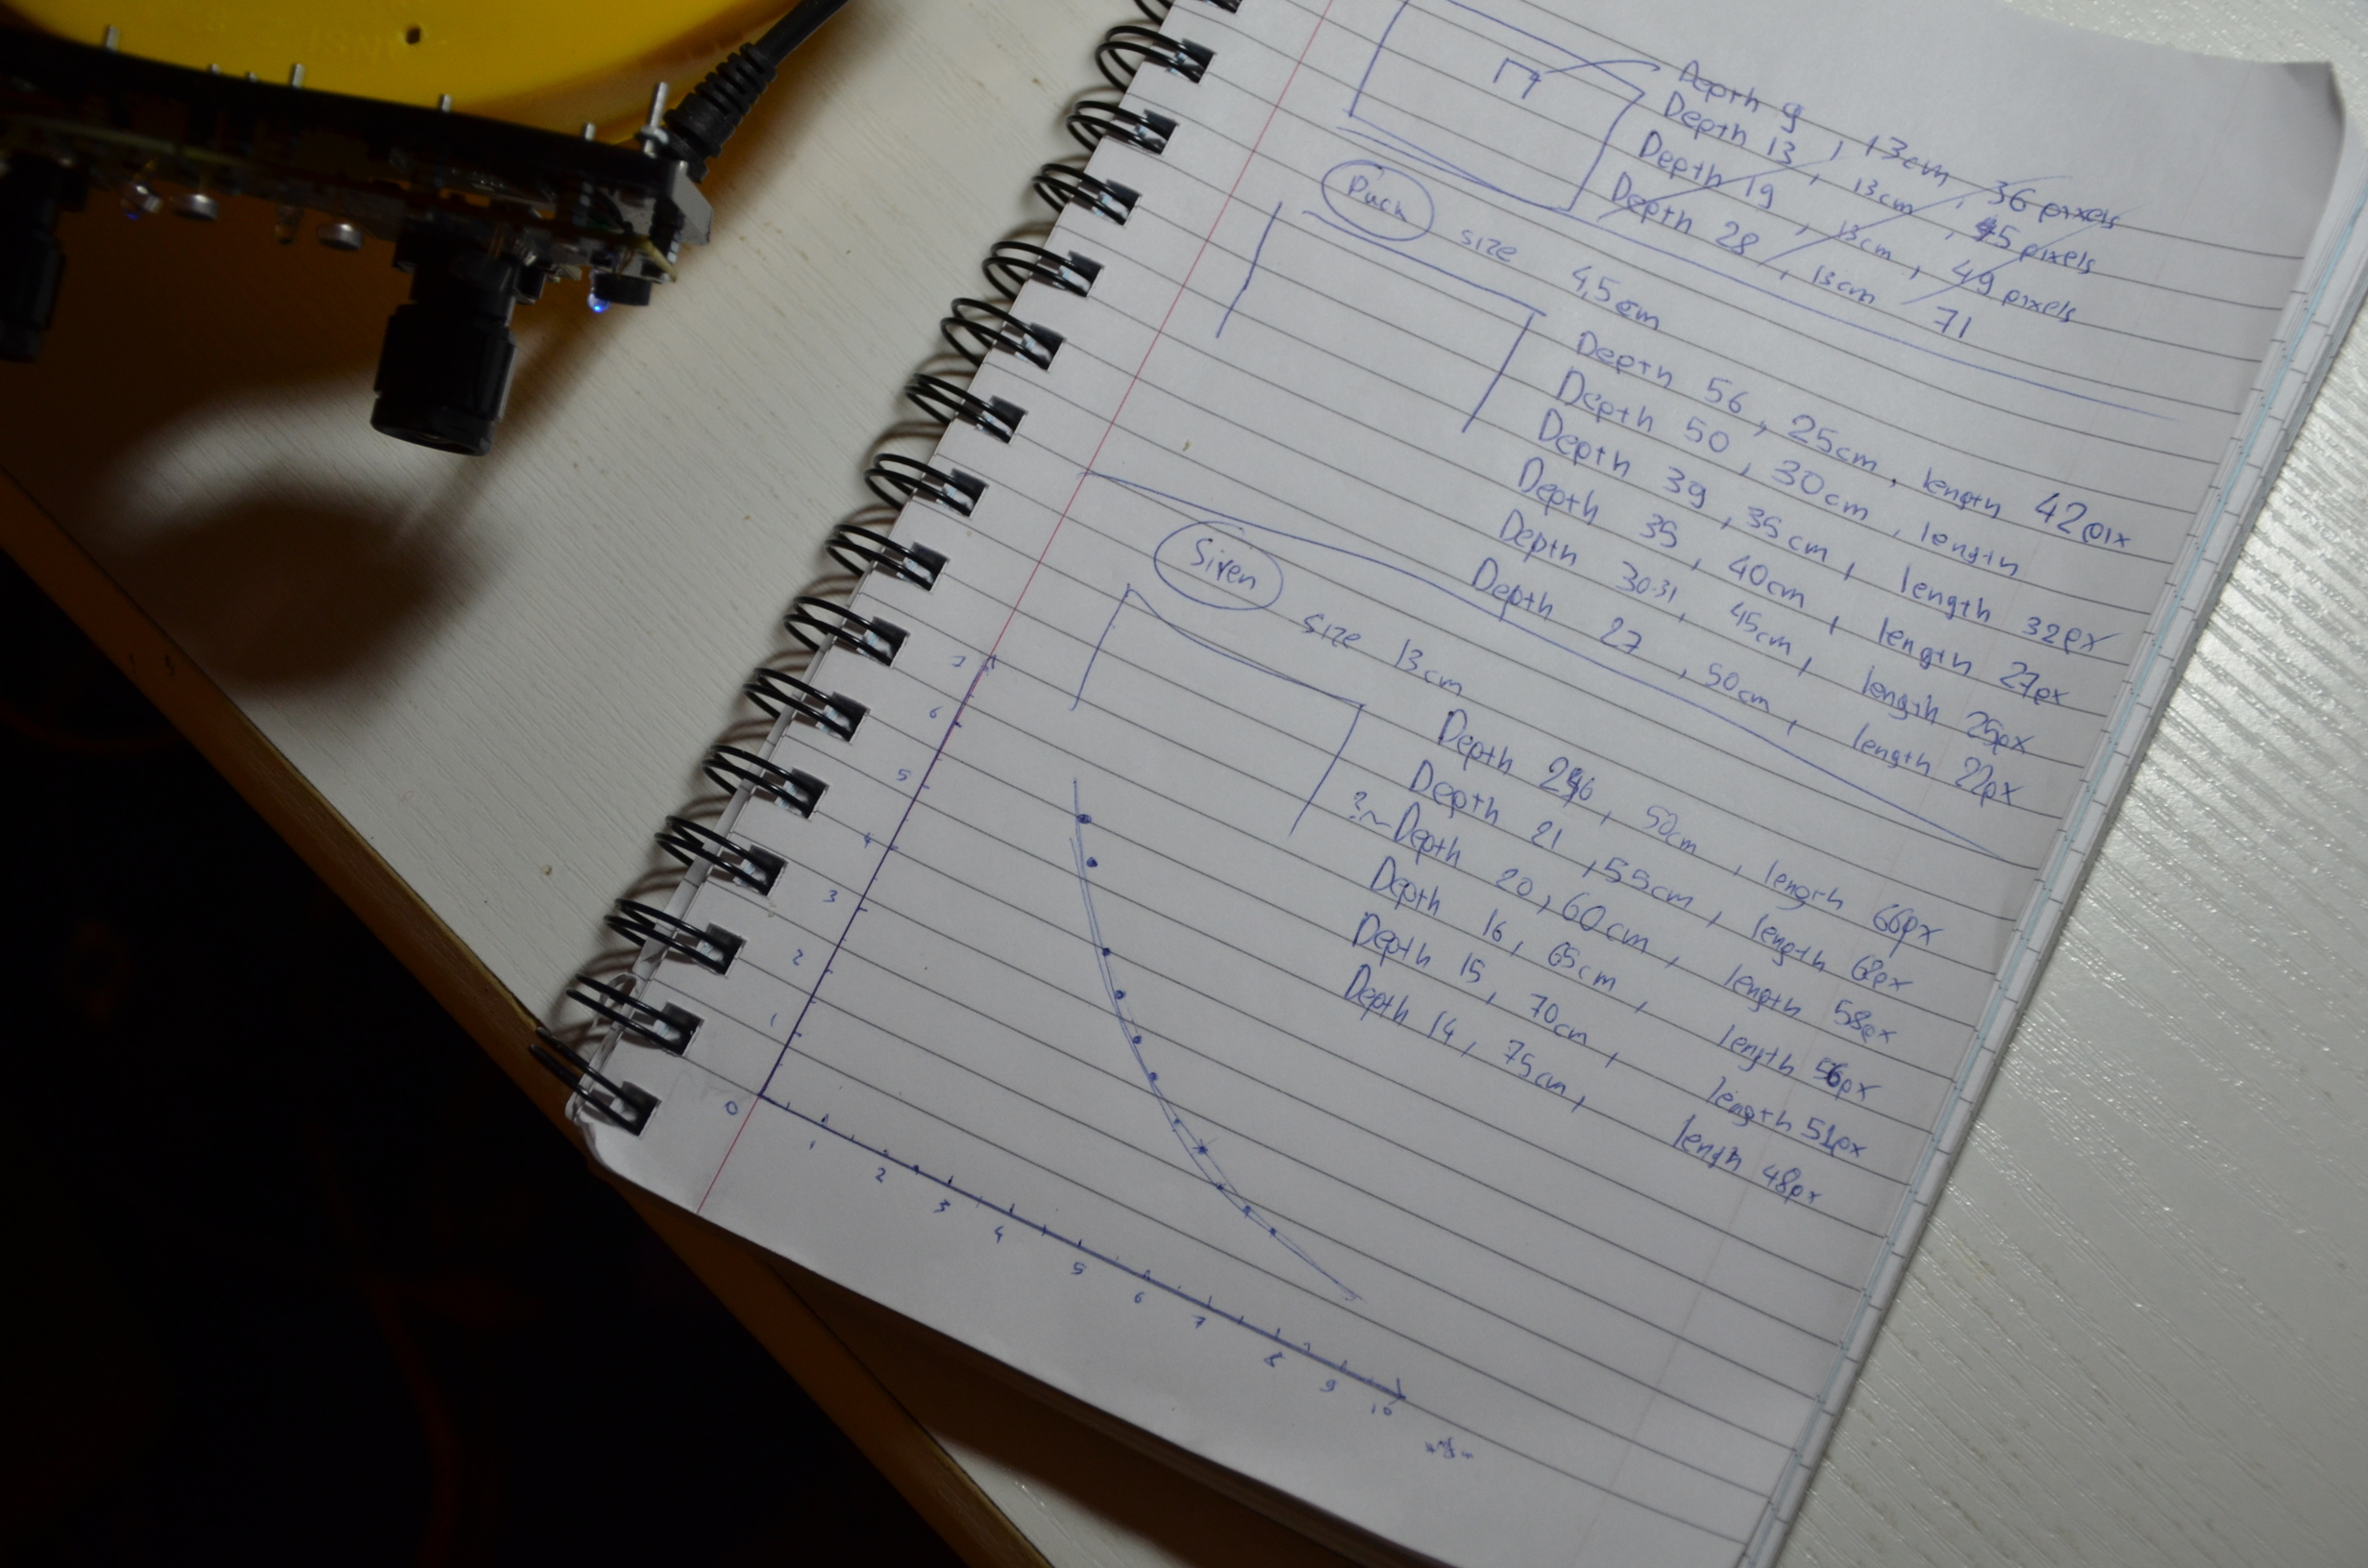 Depth 9, 13cm, 36 pixels
Depth 13, 13cm, 45 pixels
Depth 19, 13cm, 49 pixels
Depth 28, 13cm 71
Puck size 4,5cm
Depth 56, 25cm, length 42pix
Depth 50, 30cm, length
Depth 39, 35cm, length 32px
Depth 35, 40cm, length 27px
Depth 30-31, 45cm, length 25px
Depth 27, 50cm, length 22px
Siren size 13cm
Depth 26, 50cm, length 66px
Depth 21, 55cm, length 62px
?~ Depth 20, 60cm, length 58px
Depth 16, 65cm, length 56px
Depth 15, 70cm, length 51px
Depth 14, 75cm, length 48px
7
6
5
4
3
2
1
0
1 2 3 4 5 6 7 8 9 10